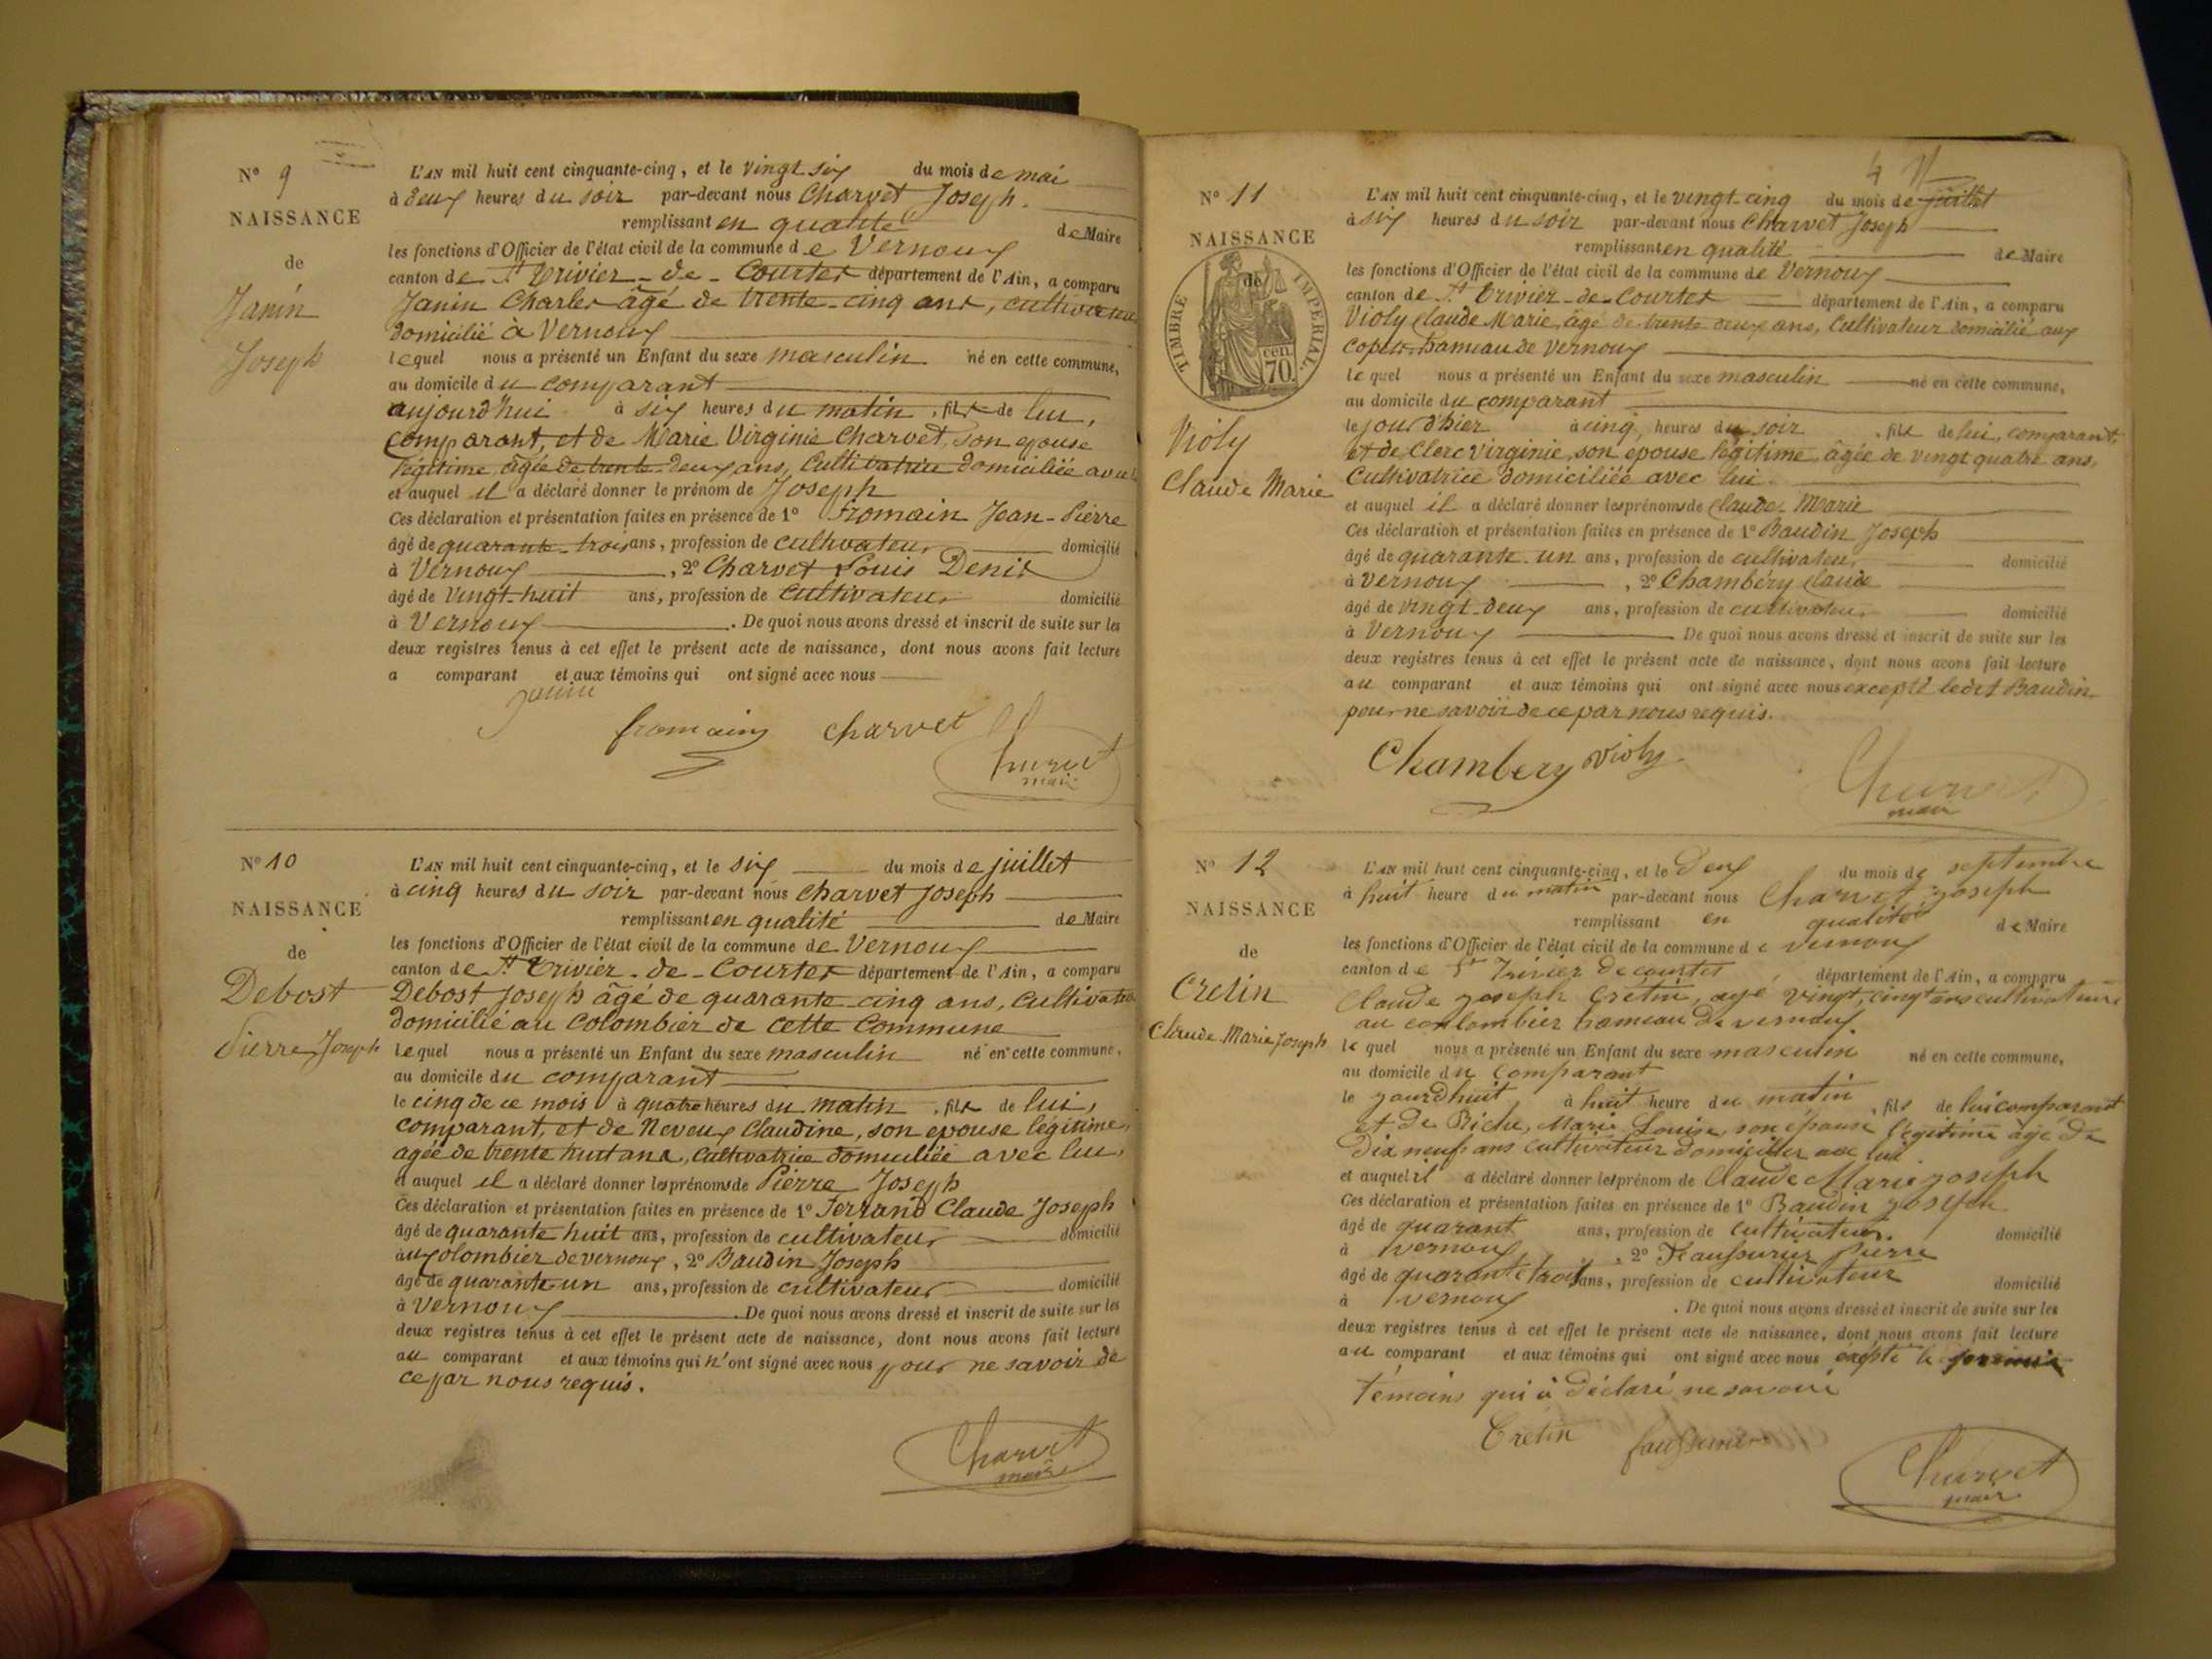 N° 9
NAISSANCE
de
Janin
Joseph
L'AN mil huit cent cinquante-cinq, et le vingt six du mois de mai
à deux heures du soir par-devant nous Charvet Joseph.
remplissant en qualité de Maire
les fonctions d'Officier de l'état civil de la commune de Vernoux
canton de St Trivier-de-Courtes département de l'Ain, a comparu
Janin Charles âgé de trente-cinq ans, cultivateur
domicilié à Vernoux
lequel nous a présenté un Enfant du sexe masculin né en cette commune,
au domicile du comparant
aujourd'hui à six heures du matin, fils de lui,
comparant, et de Marie Virginie Charvet, son epouse
légitime âgée de trente-deux ans, Cultivatrice domiciliée avec
et auquel il a déclaré donner le prénom de Joseph
Ces déclaration et présentation faites en présence de 1° Fromain Jean-Pierre
âgé de quarante-trois ans, profession de cultivateur domicilié
à Vernoux, 2° Charvet Louis Denis
âgé de vingt-huit ans, profession de cultivateur domicilié
à Vernoux. De quoi nous avons dressé et inscrit de suite sur les
deux registres tenus à cet effet le présent acte de naissance, dont nous avons fait lecture
a comparant et aux témoins qui ont signé avec nous
Janin
fromain charvet
Charvet
maire
N° 10
NAISSANCE
de
Debost
Pierre Joseph
L'AN mil huit cent cinquante-cinq, et le six du mois de juillet
à cinq heures du soir par-devant nous Charvet Joseph
remplissant en qualité de Maire
les fonctions d'Officier de l'état civil de la commune de Vernoux
canton de St Trivier-de-Courtes département de l'Ain, a comparu
Debost Joseph âgé de quarante-cinq ans, Cultivateur
domicilié au Colombier de cette Commune
lequel nous a présenté un Enfant du sexe masculin né en cette commune,
au domicile du comparant
le cinq de ce mois à quatre heures du matin, fils de lui,
comparant, et de Neveux Claudine, son epouse légitime,
agée de trente huit ans, Cultivatrice domiciliée avec lui,
et auquel il a déclaré donner les prénoms de Pierre Joseph
Ces déclaration et présentation faites en présence de 1° Ferrand Claude Joseph
âgé de quarante huit ans, profession de cultivateur domicilié
au Colombier de Vernoux, 2° Baudin Joseph
âgé de quarante-un ans, profession de cultivateur domicilié
à Vernoux. De quoi nous avons dressé et inscrit de suite sur les
deux registres tenus à cet effet le présent acte de naissance, dont nous avons fait lecture
au comparant et aux témoins qui n'ont signé avec nous pour ne savoir de
ce par nous requis.
Charvet
maire
4
N° 11
NAISSANCE
de
TIMBRE IMPERIAL.
cen.
70.
Violy
Claude Marie
L'AN mil huit cent cinquante-cinq, et le vingt-cinq du mois de juillet
à six heures du soir par-devant nous Charvet Joseph
remplissant en qualité de Maire
les fonctions d'Officier de l'état civil de la commune de Vernoux
canton de St Trivier-de-Courtes département de l'Ain, a comparu
Violy Claude Marie, âgé de trente deux ans, Cultivateur domicilié aux
hameau de Vernoux
lequel nous a présenté un Enfant du sexe masculin né en cette commune,
au domicile du comparant
le jour d'hier à cinq heures du soir, fils de lui, comparant,
et de Clerc Virginie, son epouse légitime, âgée de vingt quatre ans,
Cultivatrice domiciliée avec lui.
et auquel il a déclaré donner les prénoms de Claude-Marie
Ces déclaration et présentation faites en présence de 1° Baudin Joseph
âgé de quarante-un ans, profession de cultivateur domicilié
à Vernoux, 2° Chambéry Claude
âgé de vingt-deux ans, profession de cultivateur domicilié
à Vernoux De quoi nous avons dressé et inscrit de suite sur les
deux registres tenus à cet effet le présent acte de naissance, dont nous avons fait lecture
au comparant et aux témoins qui ont signé avec nous excepté ledit Baudin
pour ne savoir de ce par nous requis.
Chambery Violy
Charvet
maire
N° 12
NAISSANCE
de
Cretin
Claude Marie Joseph
L'AN mil huit cent cinquante-cinq, et le Deux du mois de septembre
à huit heure du matin par-devant nous Charvet joseph
remplissant en qualité de Maire
les fonctions d'Officier de l'état civil de la commune de vernoux
canton de St Trivier de courtes département de l'Ain, a comparu
Claude joseph Crétin, agé vingt, cinq ans cultivateur
au colombier hameau de vernoux
le quel nous a présenté un Enfant du sexe masculin né en cette commune,
au domicile du comparant
le jourdhuit, à huit heure du matin, fils de lui comparant
et de Riche, Marie Louise, son épouse légitime âgé de
Dix neuf ans cultivateur domicilier avec lui
et auquel il a déclaré donner les prénom de Claude Marie joseph
Ces déclaration et présentation faites en présence de 1° Baudin joseph
âgé de quarant ans, profession de cultivateur. domicilié
à vernoux, 2° Faussurier pierre
âgé de quarante trois ans, profession de cultivateur domicilié
à vernoux. De quoi nous avons dressé et inscrit de suite sur les
deux registres tenus à cet effet le présent acte de naissance, dont nous avons fait lecture
au comparant et aux témoins qui ont signé avec nous excepté le
témoins qui à déclaré ne savoir
Cretin faussurier
Charvet
maire